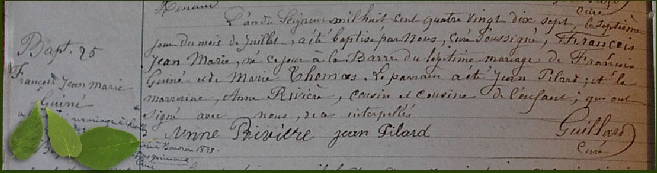 Curé
L'an du Seigneur mil huit cent quatre vingt dix sept, le septième
jour du mois de Juillet, a été baptisé par Nous, Curé Soussigné, François
Jean Marie, né ce jour à la Barre du légitime mariage de François
Guiné et de Marie Thomas. Le parrain a été Jean Pilard, et la
marraine, Anne Rivière, cousin et cousine de l'enfant, qui ont
signé avec nous, de ce interpellés
Anne Rivière Jean Pilard Guillard
Curé
Bapt. 25
François Jean Marie
Guiné